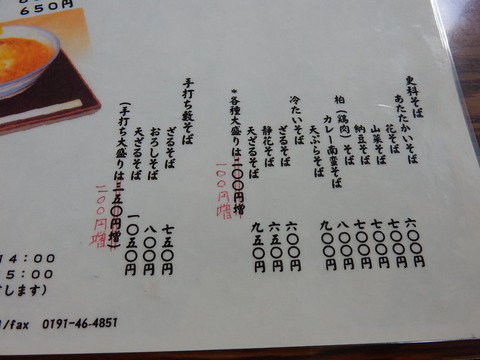 650円
更科そば
あたたかいそば
花そば 六〇〇円
山菜そば 七〇〇円
納豆そば 七〇〇円
柏(鶏肉)そば 七〇〇円
カレー南蛮そば 八〇〇円
天ぷらそば 九〇〇円
冷たいそば
ざるそば 六〇〇円
静花そば 六五〇円
天ざるそば 九五〇円
*各種大盛りは一〇〇円増
二〇〇円増
手打ち藪そば
ざるそば 七五〇円
おろしそば 八〇〇円
天ざるそば 一〇五〇円
(手打ち大盛りは一五〇円増)
二〇〇円増
14:00
5:00
します)
l/fax 0191-46-4851